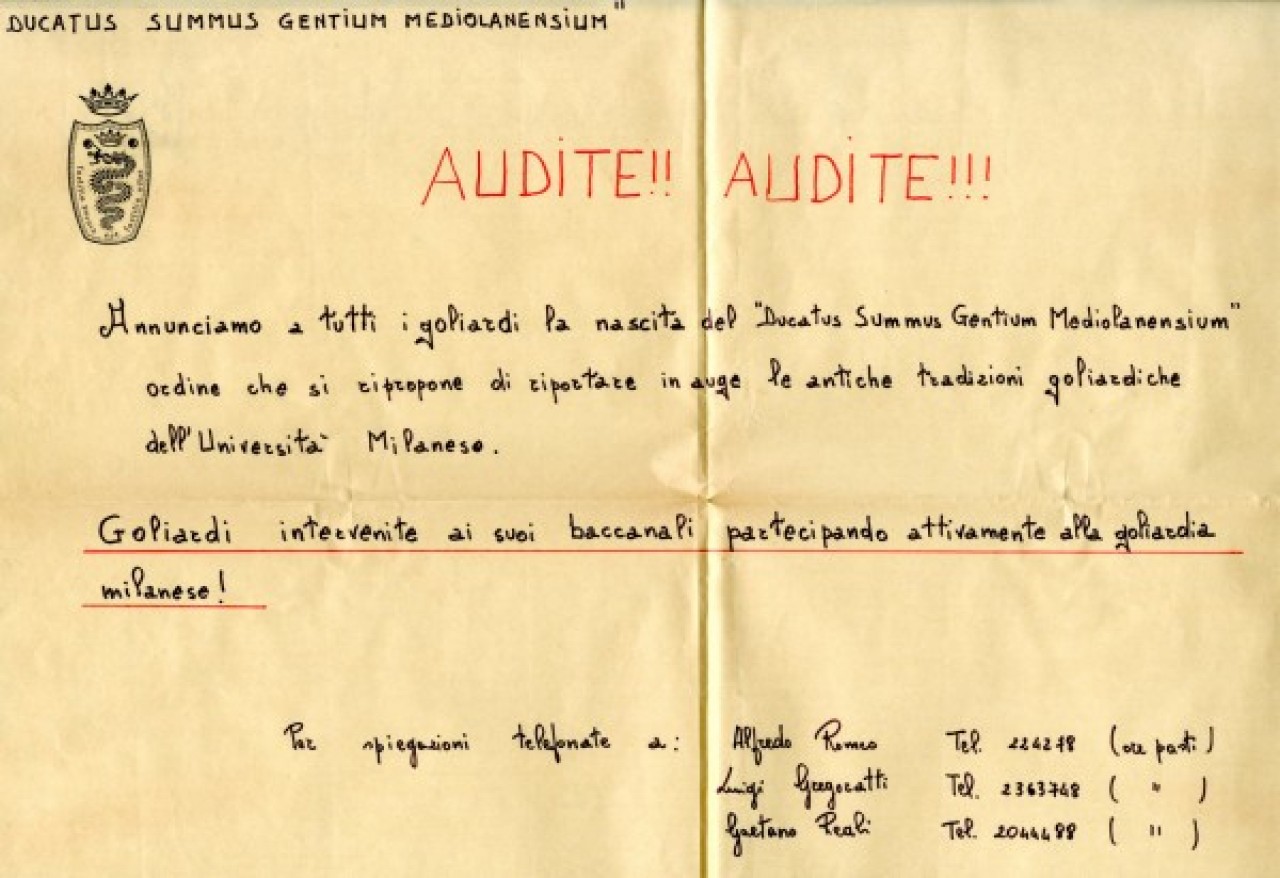 DUCATUS SUMMUS GENTIUM MEDIOLANENSIUM"
AUDITE!! AUDITE!!!
Annunciamo a tutti i goliardi la nascita del "Ducatus Summus Gentium Mediolanensium"
ordine che si ripropone di riportare in auge le antiche tradizioni goliardiche
dell'Università Milanese.
Goliardi intervenite ai suoi baccanali partecipando attivamente alla goliardia
milanese!
Per spiegazioni telefonate a: Alfredo Romeo Tel. 224278 (ore pasti)
Luigi Gregoratti Tel. 2363748 ( " )
Gaetano Reali Tel. 2044488 ( " )